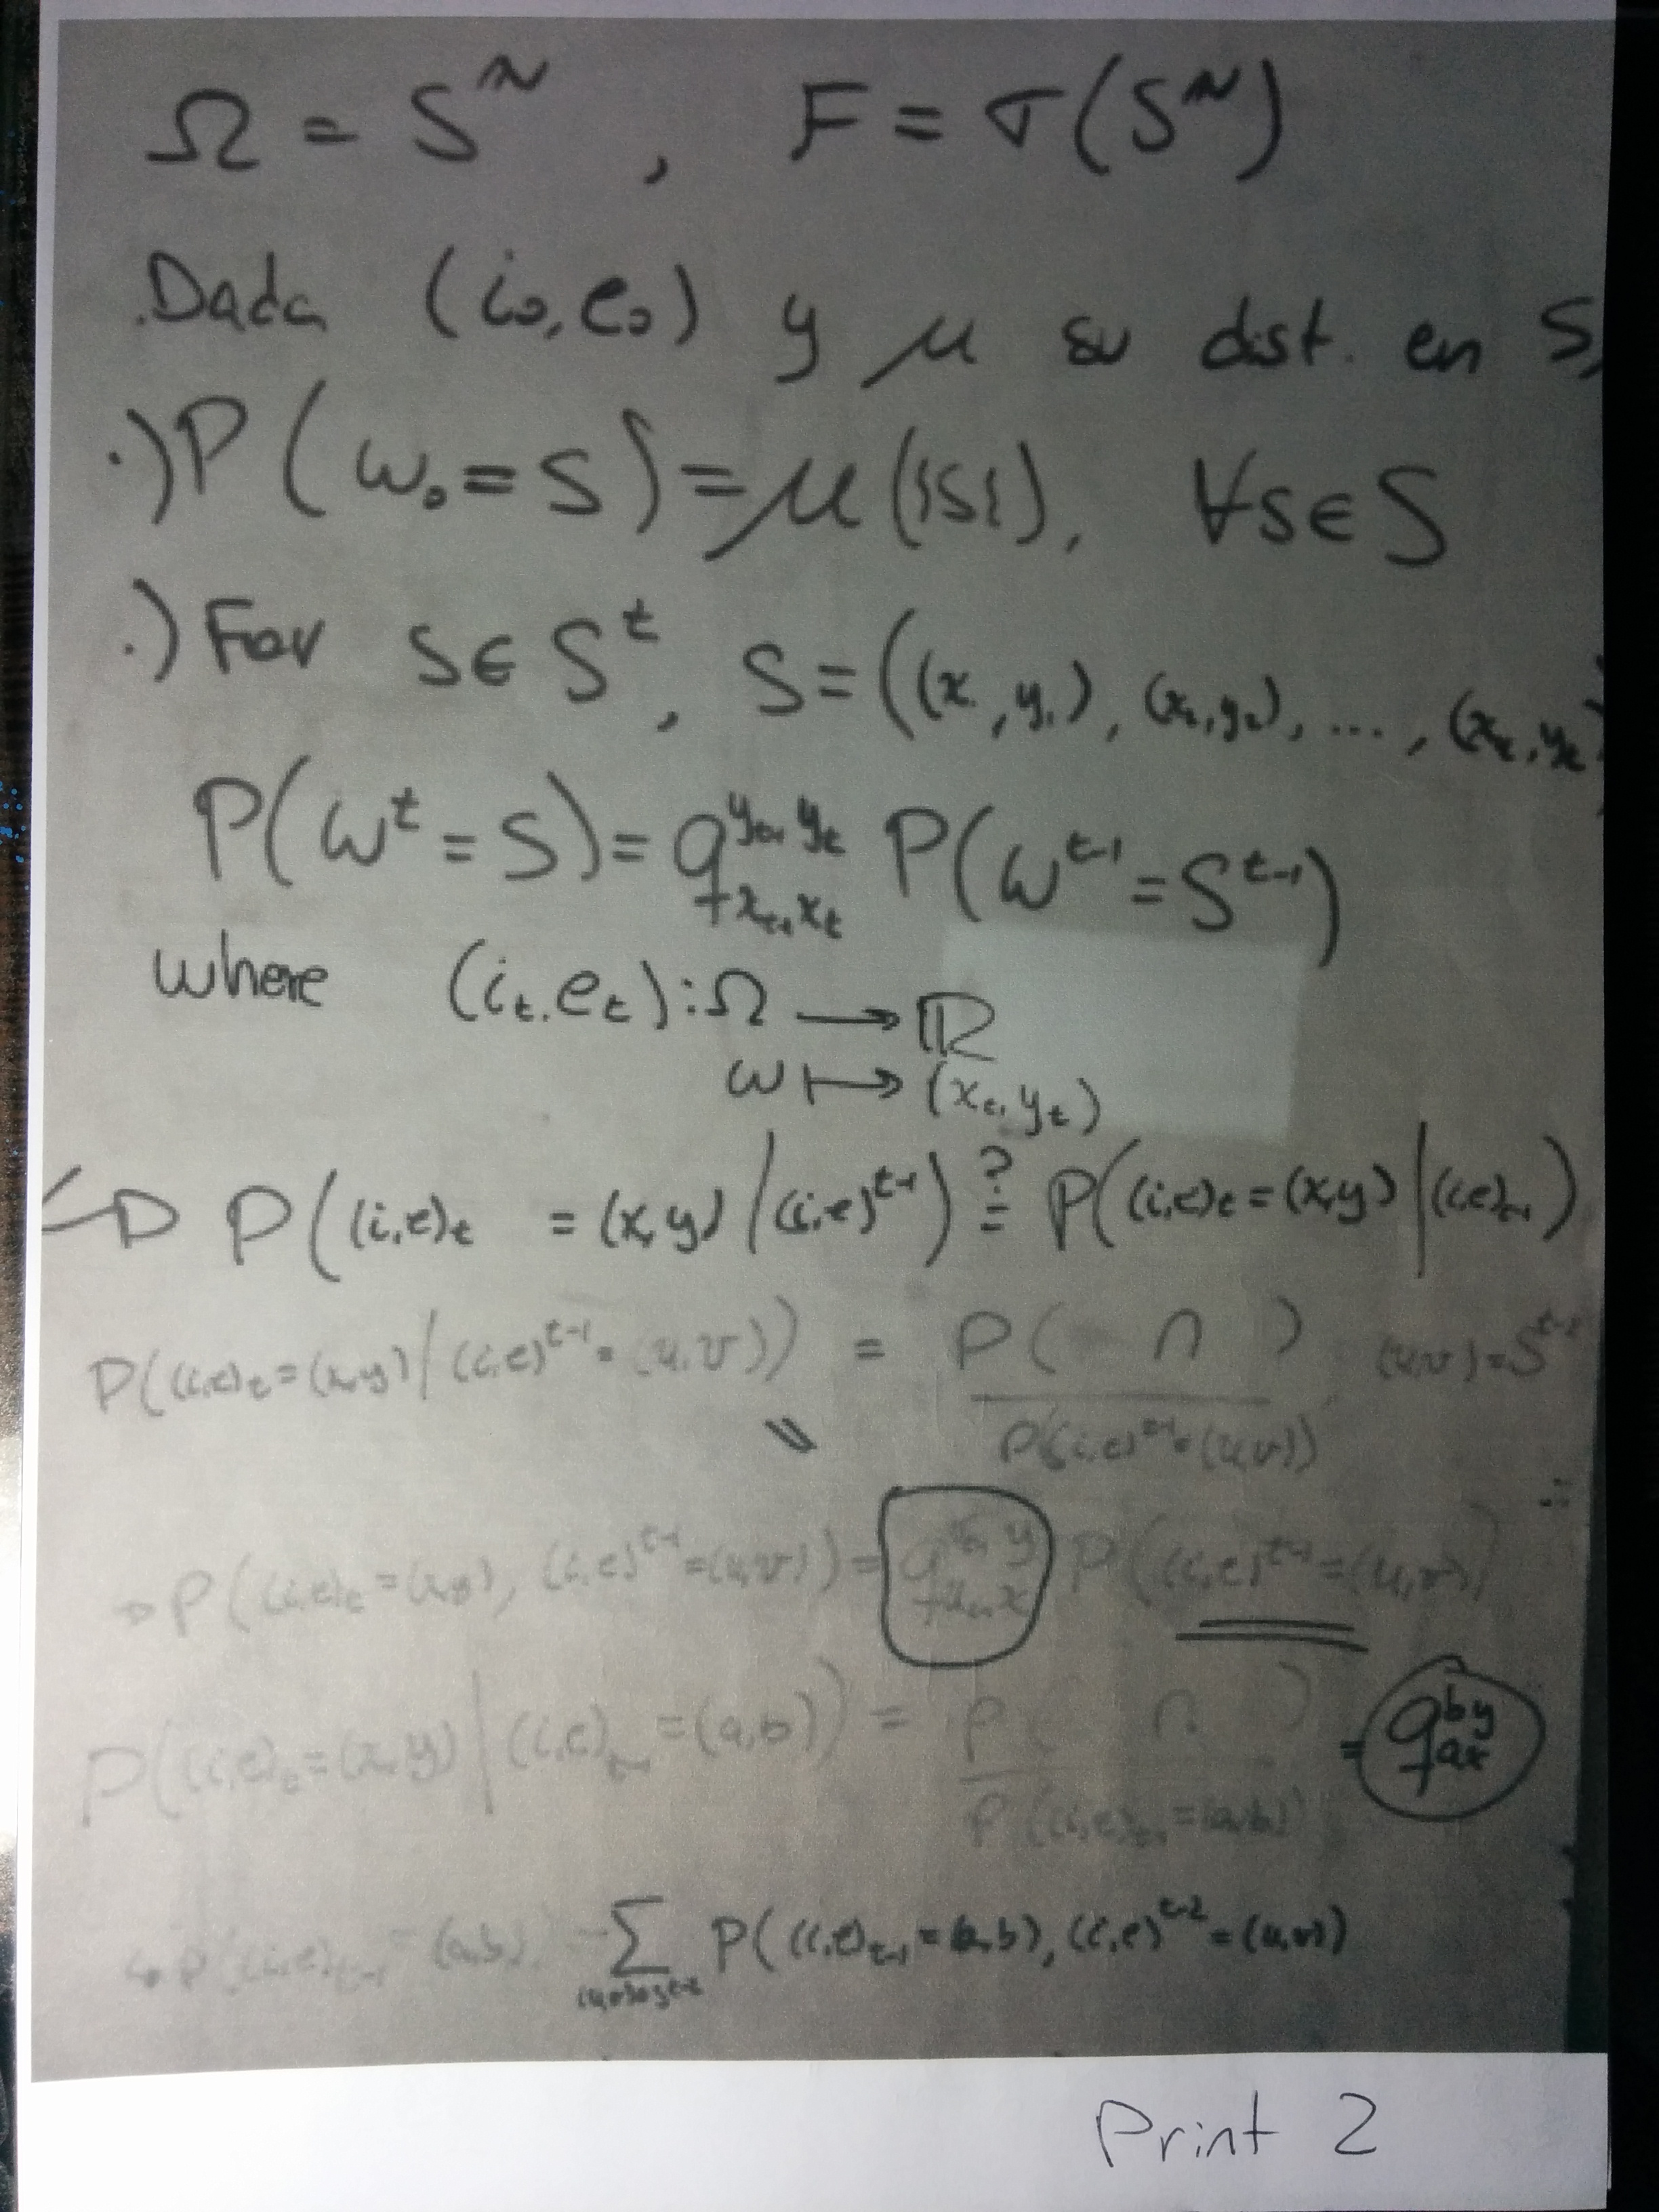 Ω = S^ℕ , F = σ(S^ℕ)
.Dada (i₀, e₀) y μ su dist. en S,
·) P(ω₀ = s) = μ({s}), ∀s∈S
·) For s ∈ S^t, s = ((x₁, y₁), (x₂, y₂), ..., (x_t, y_t)
P(ω^t = s) = q^{y_{t-1} y_t}_{x_{t-1} x_t} P(ω^{t-1} = s^{t-1})
where (i_t, e_t) : Ω → ℝ
ω ↦ (x_t, y_t)
P((i,e)_t = (x,y) | (i,e)^{t-1}) ?= P((i,e)_t = (x,y) | (i,e)_{t-1})
P((i,e)_t = (x,y) | (i,e)^{t-1} = (u,v)) = P( ∩ ) / P((i,e)^{t-1} = (u,v))
P((i,e)_t = , (i,e)^{t-1} = (u,v)) = P((i,e)^{t-1} = (u,v))
P((i,e)_t = (x,y) | (i,e)_{t-1} = (a,b)) = P( ∩ ) / P((i,e)_{t-1} = (a,b)) = q^{by}_{ax}
P (i,e)_{t-1} = (a,b) Σ P((i,e)_{t-1} = (a,b), (i,e)^{t-2} = (u,v))
Print 2